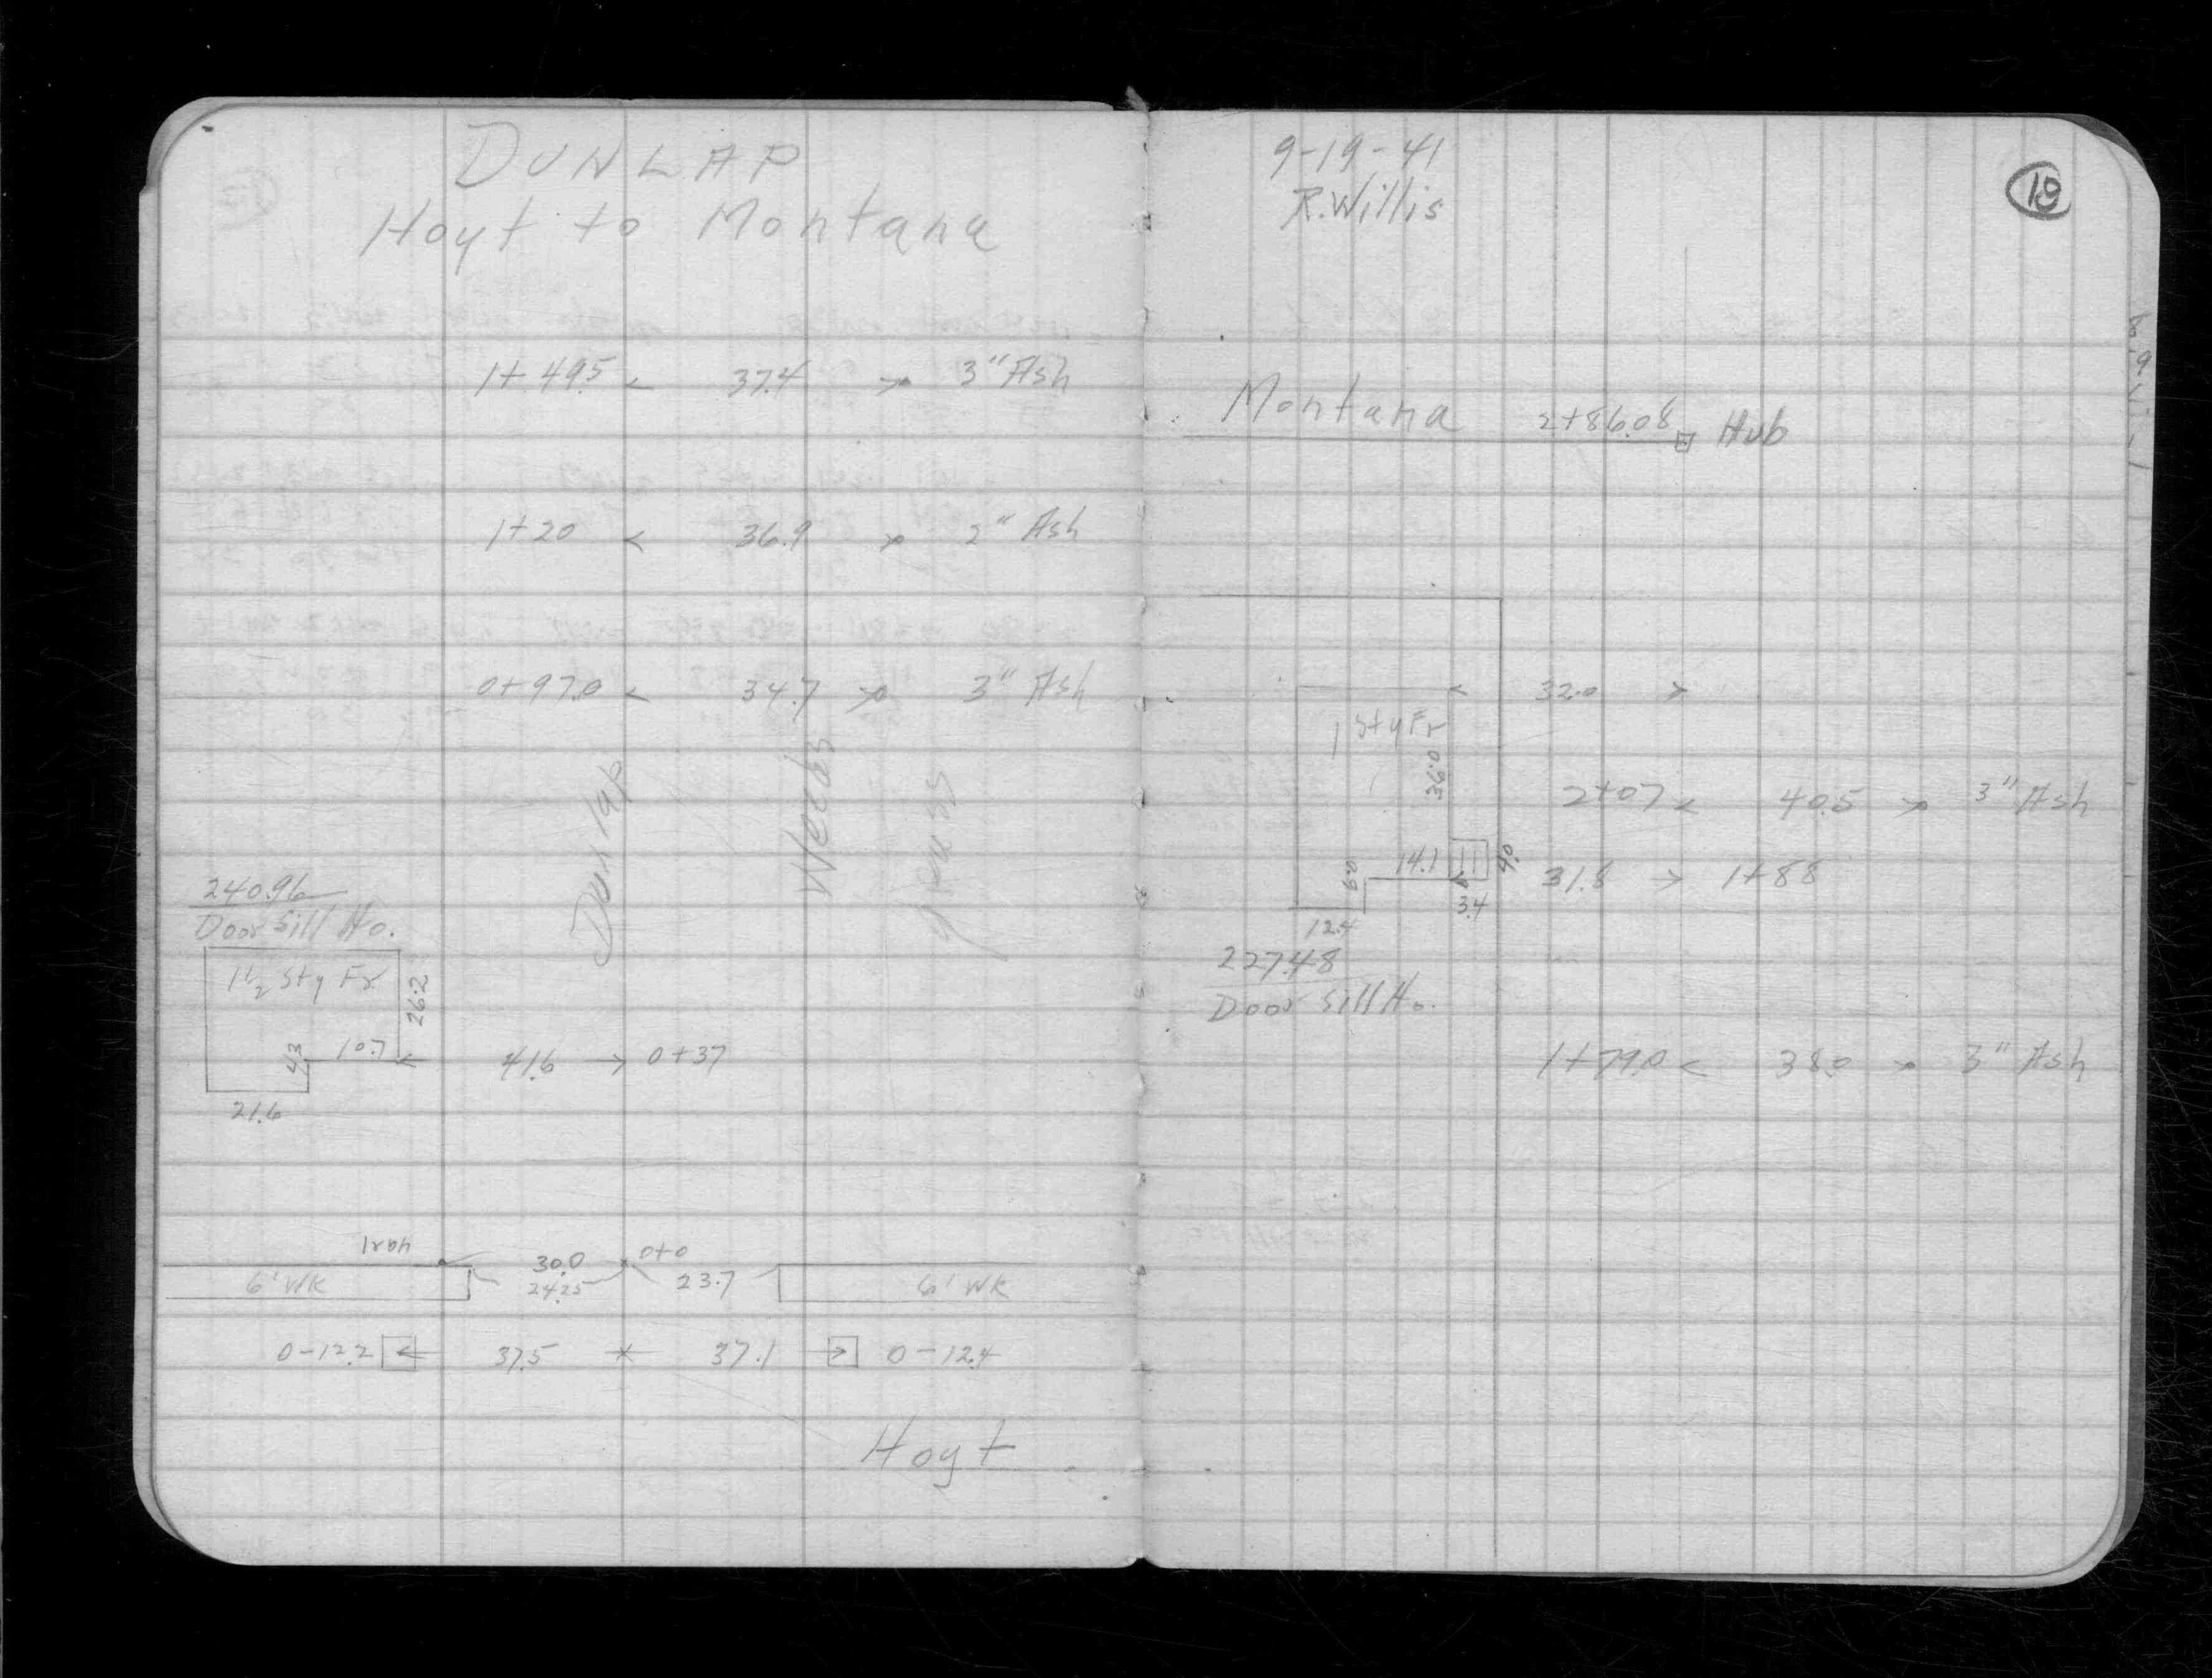 DUNLAP
Hoyt to Montana
1+49.5 < 37.4 > 3" Ash
1+20 < 36.9 > 2" Ash
0+97.0 < 34.7 > 3" Ash
Dunlap
Weeds
grass
240.96
Door Sill Ho.
1 1/2 Sty Fr.
26.2
4.3
10.7
41.6 → 0+37
21.6
Iron
30.0
0+0
6' WK
24.25
23.7
6' WK
0-12.2
37.5
37.1
0-12.4
Hoyt
9-19-41
R. Willis
18
Montana 2+86.08 Hub
< 32.0 >
1 Sty Fr
36.0
2+07 < 40.5 > 3" Ash
6.0
14.1
4.0
31.8 > 1+88
3.4
12.4
227.48
Door Sill Ho.
1+79.0 < 38.0 > 3" Ash